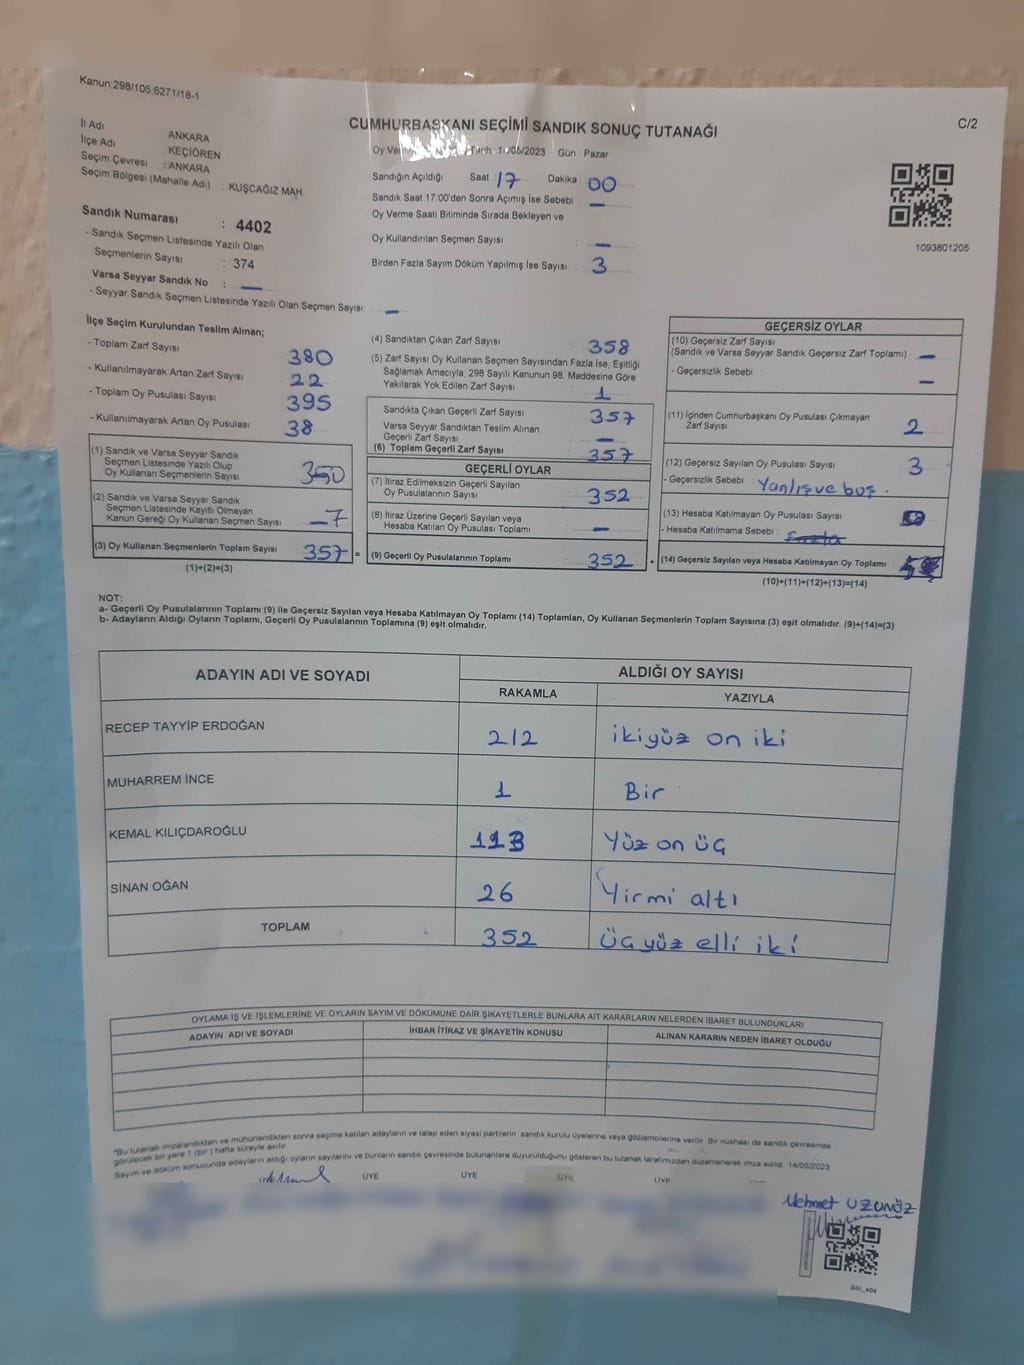 Kanun;298/105;6271/18-1
C/2
CUMHURBAŞKANI SEÇİMİ SANDIK SONUÇ TUTANAĞI
İl Adı ANKARA
İlçe Adı : KEÇİÖREN
Seçim Çevresi : ANKARA
Seçim Bölgesi (Mahalle Adı) : KUŞCAĞIZ MAH.
Sandık Numarası : 4402
- Sandık Seçmen Listesinde Yazılı Olan
Seçmenlerin Sayısı : 374
Varsa Seyyar Sandık No : —
- Seyyar Sandık Seçmen Listesinde Yazılı Olan Seçmen Sayısı —
Oy /05/2023 Gün : Pazar
Sandığın Açıldığı Saat : 17 Dakika : 00
Sandık Saat 17:00'den Sonra Açımış İse Sebebi : —
Oy Verme Saati Bitiminde Sırada Bekleyen ve
Oy Kullandırılan Seçmen Sayısı : —
Birden Fazla Sayım Döküm Yapılmış İse Sayısı : 3
1093601205
İlçe Seçim Kurulundan Teslim Alınan;
- Toplam Zarf Sayısı 380
- Kullanılmayarak Artan Zarf Sayısı 22
- Toplam Oy Pusulası Sayısı 395
- Kullanılmayarak Artan Oy Pusulası 38
(1) Sandık ve Varsa Seyyar Sandık
Seçmen Listesinde Yazılı Olup
Oy Kullanan Seçmenlerin Sayısı 350
(2) Sandık ve Varsa Seyyar Sandık
Seçmen Listesinde Kayıtlı Olmayan
Kanun Gereği Oy Kullanan Seçmen Sayısı —7
(3) Oy Kullanan Seçmenlerin Toplam Sayısı : 357 =
(1)+(2)=(3)
(4) Sandıktan Çıkan Zarf Sayısı 358
(5) Zarf Sayısı Oy Kullanan Seçmen Sayısından Fazla İse, Eşitliği
Sağlamak Amacıyla, 298 Sayılı Kanunun 98. Maddesine Göre
Yakılarak Yok Edilen Zarf Sayısı 1
Sandıkta Çıkan Geçerli Zarf Sayısı 357
Varsa Seyyar Sandıktan Teslim Alınan
Geçerli Zarf Sayısı —
(6) Toplam Geçerli Zarf Sayısı 357
GEÇERLİ OYLAR
(7) İtiraz Edilmeksizin Geçerli Sayılan
Oy Pusulalarının Sayısı : 352
(8) İtiraz Üzerine Geçerli Sayılan veya
Hesaba Katılan Oy Pusulası Toplamı —
(9) Geçerli Oy Pusulalarının Toplamı : 352 +
GEÇERSİZ OYLAR
(10) Geçersiz Zarf Sayısı
(Sandık ve Varsa Seyyar Sandık Geçersiz Zarf Toplamı) : —
- Geçersizlik Sebebi : —
(11) İçinden Cumhurbaşkanı Oy Pusulası Çıkmayan
Zarf Sayısı 2
(12) Geçersiz Sayılan Oy Pusulası Sayısı 3
- Geçersizlik Sebebi : Yanlış ve boş.
(13) Hesaba Katılmayan Oy Pusulası Sayısı
- Hesaba Katılmama Sebebi : Fazla
(14) Geçersiz Sayılan veya Hesaba Katılmayan Oy Toplamı
(10)+(11)+(12)+(13)=(14)
NOT:
a- Geçerli Oy Pusulalarının Toplamı (9) ile Geçersiz Sayılan veya Hesaba Katılmayan Oy Toplamı (14) Toplamları, Oy Kullanan Seçmenlerin Toplam Sayısına (3) eşit olmalıdır. (9)+(14)=(3)
b- Adayların Aldığı Oyların Toplamı, Geçerli Oy Pusulalarının Toplamına (9) eşit olmalıdır.
ADAYIN ADI VE SOYADI ALDIĞI OY SAYISI
RAKAMLA YAZIYLA
RECEP TAYYİP ERDOĞAN 212 ikiyüz on iki
MUHARREM İNCE 1 Bir
KEMAL KILIÇDAROĞLU 113 Yüz on üç
SİNAN OĞAN 26 Yirmi altı
TOPLAM 352 üç yüz elli iki
OYLAMA İŞ VE İŞLEMLERİNE VE OYLARIN SAYIM VE DÖKÜMÜNE DAİR ŞİKAYETLERLE BUNLARA AİT KARARLARIN NELERDEN İBARET BULUNDUKLARI
ADAYIN ADI VE SOYADI İHBAR İTİRAZ VE ŞİKAYETİN KONUSU ALINAN KARARIN NEDEN İBARET OLDUĞU
"Bu tutanak imzalandıktan ve mühürlendikten sonra seçime katılan adayların ve talep eden siyasi partilerin sandık kurulu üyelerine veya gözlemcilerine verilir. Bir nüshası da sandık çevresinde
görülecek bir yere 1 (bir) hafta süreyle asılır.
Sayım ve döküm sonucunda adayların aldığı oyların sayılarını ve bunların sandık çevresinde bulunanlara duyurulduğunu gösteren bu tutanak tarafımızdan düzenlenerek imza edildi. 14/05/2023
ÜYE ÜYE ÜYE ÜYE
Mehmet UZUNÖZ